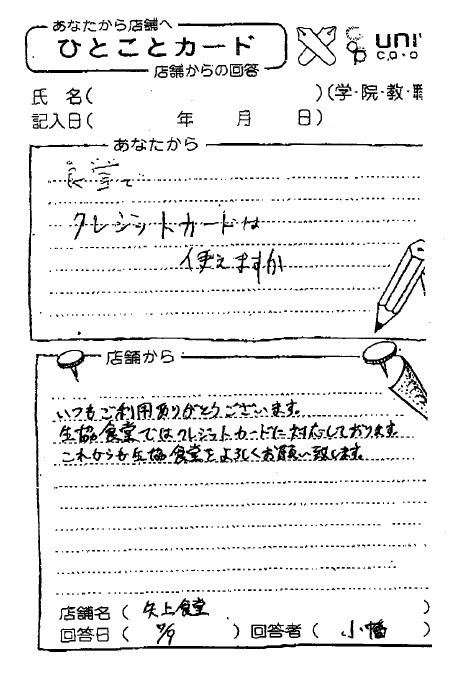 あなたから店舗へ
ひとことカード
店舗からの回答
UNI
CO・O
氏 名( )(学・院・教・職
記入日( 年 月 日)
あなたから
食堂で
クレジットカードは
使えますか
店舗から
いつもご利用ありがとうございます。
生協食堂ではクレジットカードに対応しております。
これからも生協食堂をよろしくお願い致します。
店舗名 ( 矢上食堂 )
回答日 ( 7/9 ) 回答者 ( 小幡 )